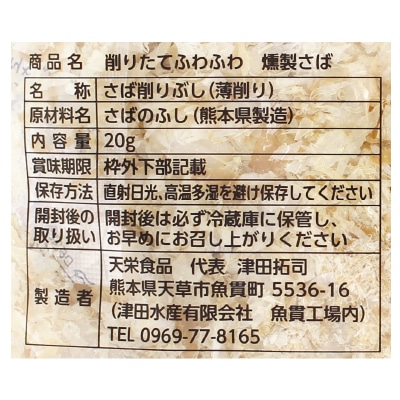 商品名 削りたてふわふわ 燻製さば
名称 さば削りぶし(薄削り)
原材料名 さばのふし(熊本県製造)
内容量 20g
賞味期限 枠外下部記載
保存方法 直射日光、高温多湿を避け保存してください
開封後の 開封後は必ず冷蔵庫に保管し、
取り扱い お早めにお召し上がりください
製造者 天栄食品 代表 津田拓司
熊本県天草市魚貫町 5536-16
(津田水産有限会社 魚貫工場内)
TEL 0969-77-8165